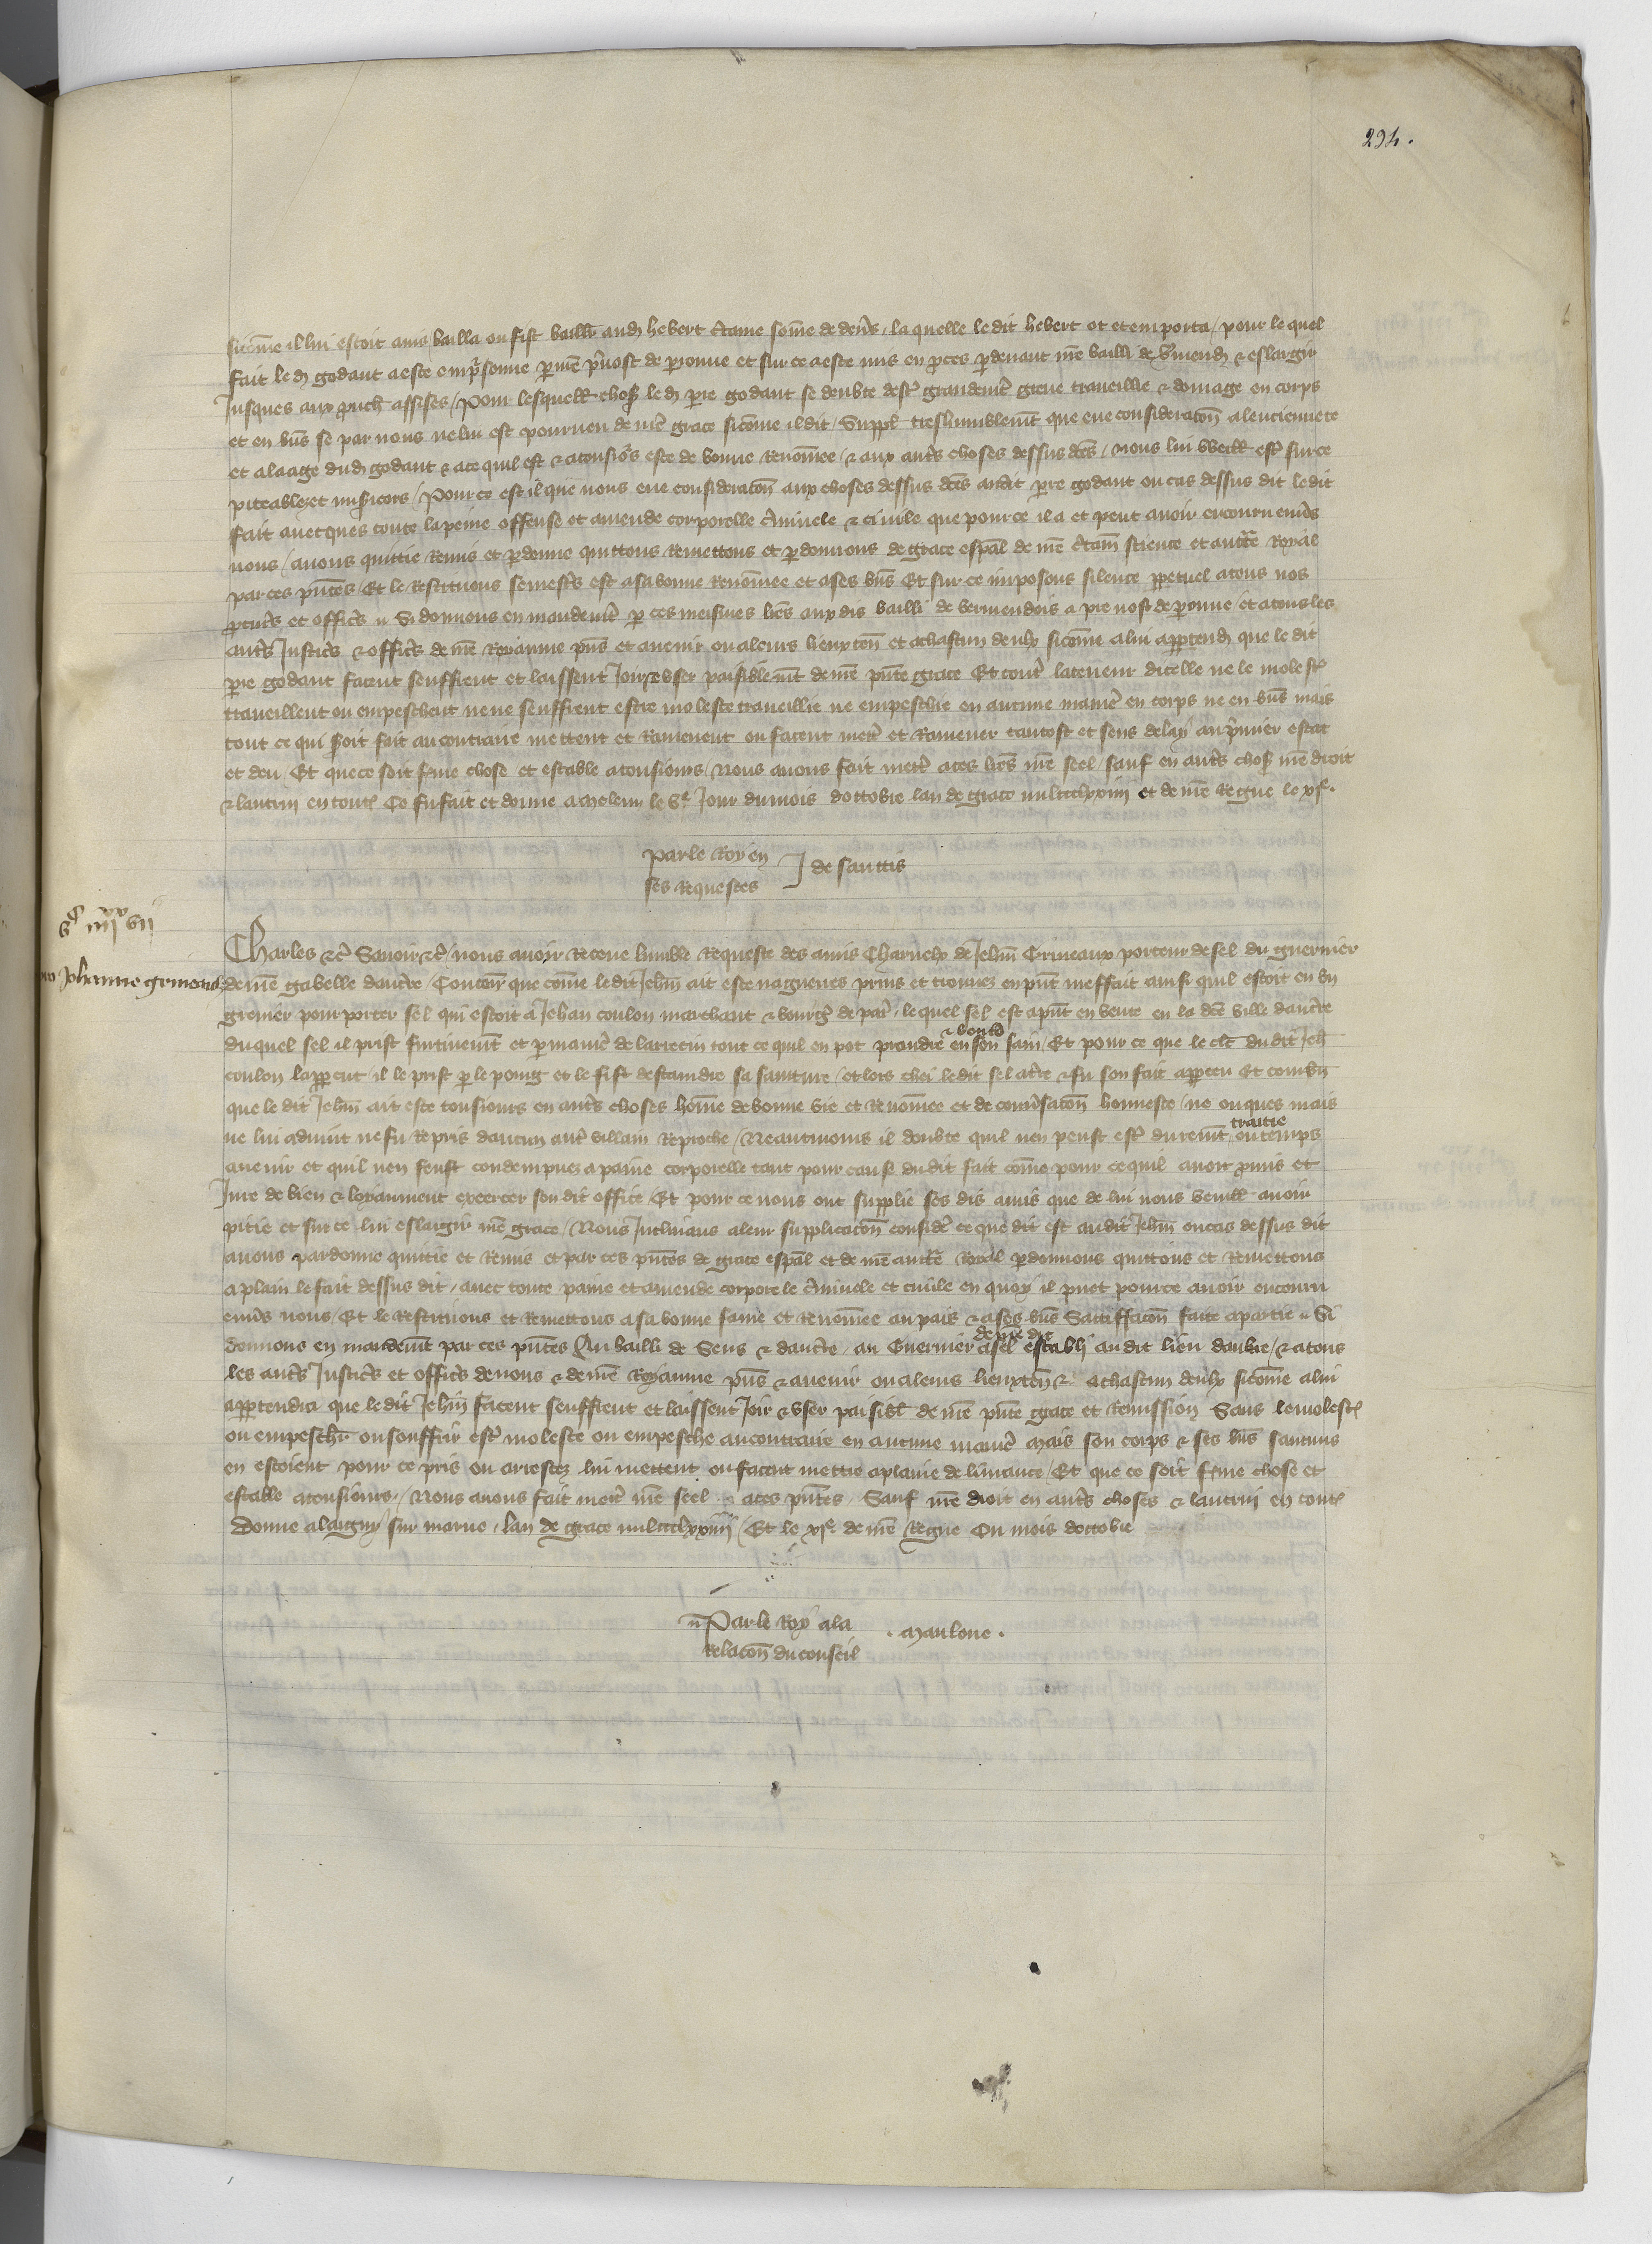 294.
sicõme il lui estoit avis bailla ou fist baillr aud hebert ctaine some de deñs, la quelle ledit hebert ot et emporta, pour le quel
fait le d godant a este emprisonne p nre pvost de peronne et sur ce a este mis en pces pdevant nre bailli de vmend & eslargir
jusques aux pch assises, pour lesquell choses le d pre godant se doubte destre grandemt greve traveillie & domage en corps
et en bns se par nous ne lui est pourveu de nre grace sicõme il dit, suppl treshumblemt que eue consideracon a lencienneté
et a laage dud godant & a ce quil est & a tousjos este de bonne renõmee, & aux auts choses dessus dcs, nous lui vueill estre sur ce
piteables et misicors, Pour ce est il que nous eue consideracon aux choses dessus dcs audit pre godant ou cas dessus dit le dit
fait avecques toute la peine offense et amende corporelle cminele & civile que pour ce il a et peut avoir encouru envs
nous, avons quittie remis et pdonne quittons remettons et pdonnons de grace espal de nre ctain science et auctte royal
par ces pntes Et le restituons se mest est a sa bonne renõmee et a ses bns Et sur ce imposons silence ppetuel a tous nos
pcurs et offics Si donnons en mandemt p ces meismes lres aux dis bailli de vermendois & prevost de peronne et a tous les
auts justics & offics de nre royaume pns et avenir ou a leurs lieuxten et a chascun deulx sicõme a lui apptend que le dit
pre godant facent seuffrent et laissent joir & user paisiblemt de nre pnte grace Et contre la teneur dicelle ne le molestent
traveillent ou empeschent ne ne seuffrent estre moleste traveillie ne empeschie en aucune manie en corps ne en bns mais
tout ce qui seroit fait au contraire mettent et ramenent ou facent mettre et ramener tantost et sens delay au primier estat
et deu Et que ce soit ferme chose et estable a tousjours, Nous avons fait mettre a ces lres nre seel, sauf en auts choses nre droit
& lautrui en toutes Ce fu fait et donne a meleun le ve jour du mois doctobre lan de grace mil ccclxxiiii et de nre regne le xje.
Par le roy en
ses requestes
de sanctis
vc iiiixx vii
pro johanne grineaux
Charles &c Savoir &c, nous avoir receue humble requeste des amis charnelx de Jehan Grineaux porteur de sel du guernier
de nre gabelle daucrre, Contenãt que cõme ledit Jehan ait este nagueres prins et trouvez en pnt meffait ainsi quil estoit en un
grenier pour porter sel qui estoit a Jehan coulon marchant & bourgs de paris, lequel sel est a pnt en vente en la dce ville daucrre
duquel sel il prist furtivemt et p manie de larrecin tout ce quil en pot prendre & bouta en son sain, Et pour ce que le clc dudit Jeh
coulon lapperceut, il le prist p le poing et le fist desceindre sa sainture, et lors chei ledit sel a tre & fu son fait appceu Et combn
que le dit Jehan ait este tousjours en auts choses hõme de bonne vie et renõmee et de convsacon honneste, ne onques mais
ne lui advint ne fu repris daucun autre villain reproche, Neantmoins il doubte quil nen peust estre duremt traitie ou temps
avenir et quil nen feust condempnez a paine corporelle tant pour cause dudit fait cõme pour ce quil avoit pmis et
jure de bien & loyaument exercer son dit office, Et pour ce nous ont supplie ses dis amis que de lui nous veuill avoir
pitie et sur ce lui eslargir nre grace, Nous Inclinans a leur supplicacon considere ce que dit est audit Jehan ou cas dessus dit
avons pardonne quittie et remis et par ces pntes de grace espal et de nre auctte royal pdonnons quittons et remettons
a plain le fait dessus dit, avec toute paine et amende corporele cminele et civile en quoy il peut pour ce avoir encouru
envs nous, Et le restituons et remettons a sa bonne fame et renõmee au pais & a ses bns Satisffacon faite a partie Si
donnons en mandemt par ces pntes Au bailli de Sens & daucrre, au Guernier a sel establi audit lieu, & a tous
les auts Justics et offics de nous & de nre Royaume pns & avenir ou a leurs lieuxten & a chascun deulx sicõme a lui
apptendra que ledit Jehan facent seuffrent et laissent joir & user paisibl de nre pnte grace et remission Sans le molestr
ou empeschr ou souffrir estre moleste ou empesche au contraire en aucune manie Mais son corps & ses bns saucuns
en estoient pour ce pris ou arrestez lui mettent ou facent mettre a plaine delivrance, Et que ce soit ferme chose et
estable a tousjours, Nous avons fait mettre nre seel a ces pntes Sauf nre droit en auts choses & lautrui en toutes
Donne a laigny sur marne, lan de grace mil ccclxxiiii, Et le xje de nre Regne Ou mois doctobre
Par le Roy a la
relacon du conseil
. Maulone .